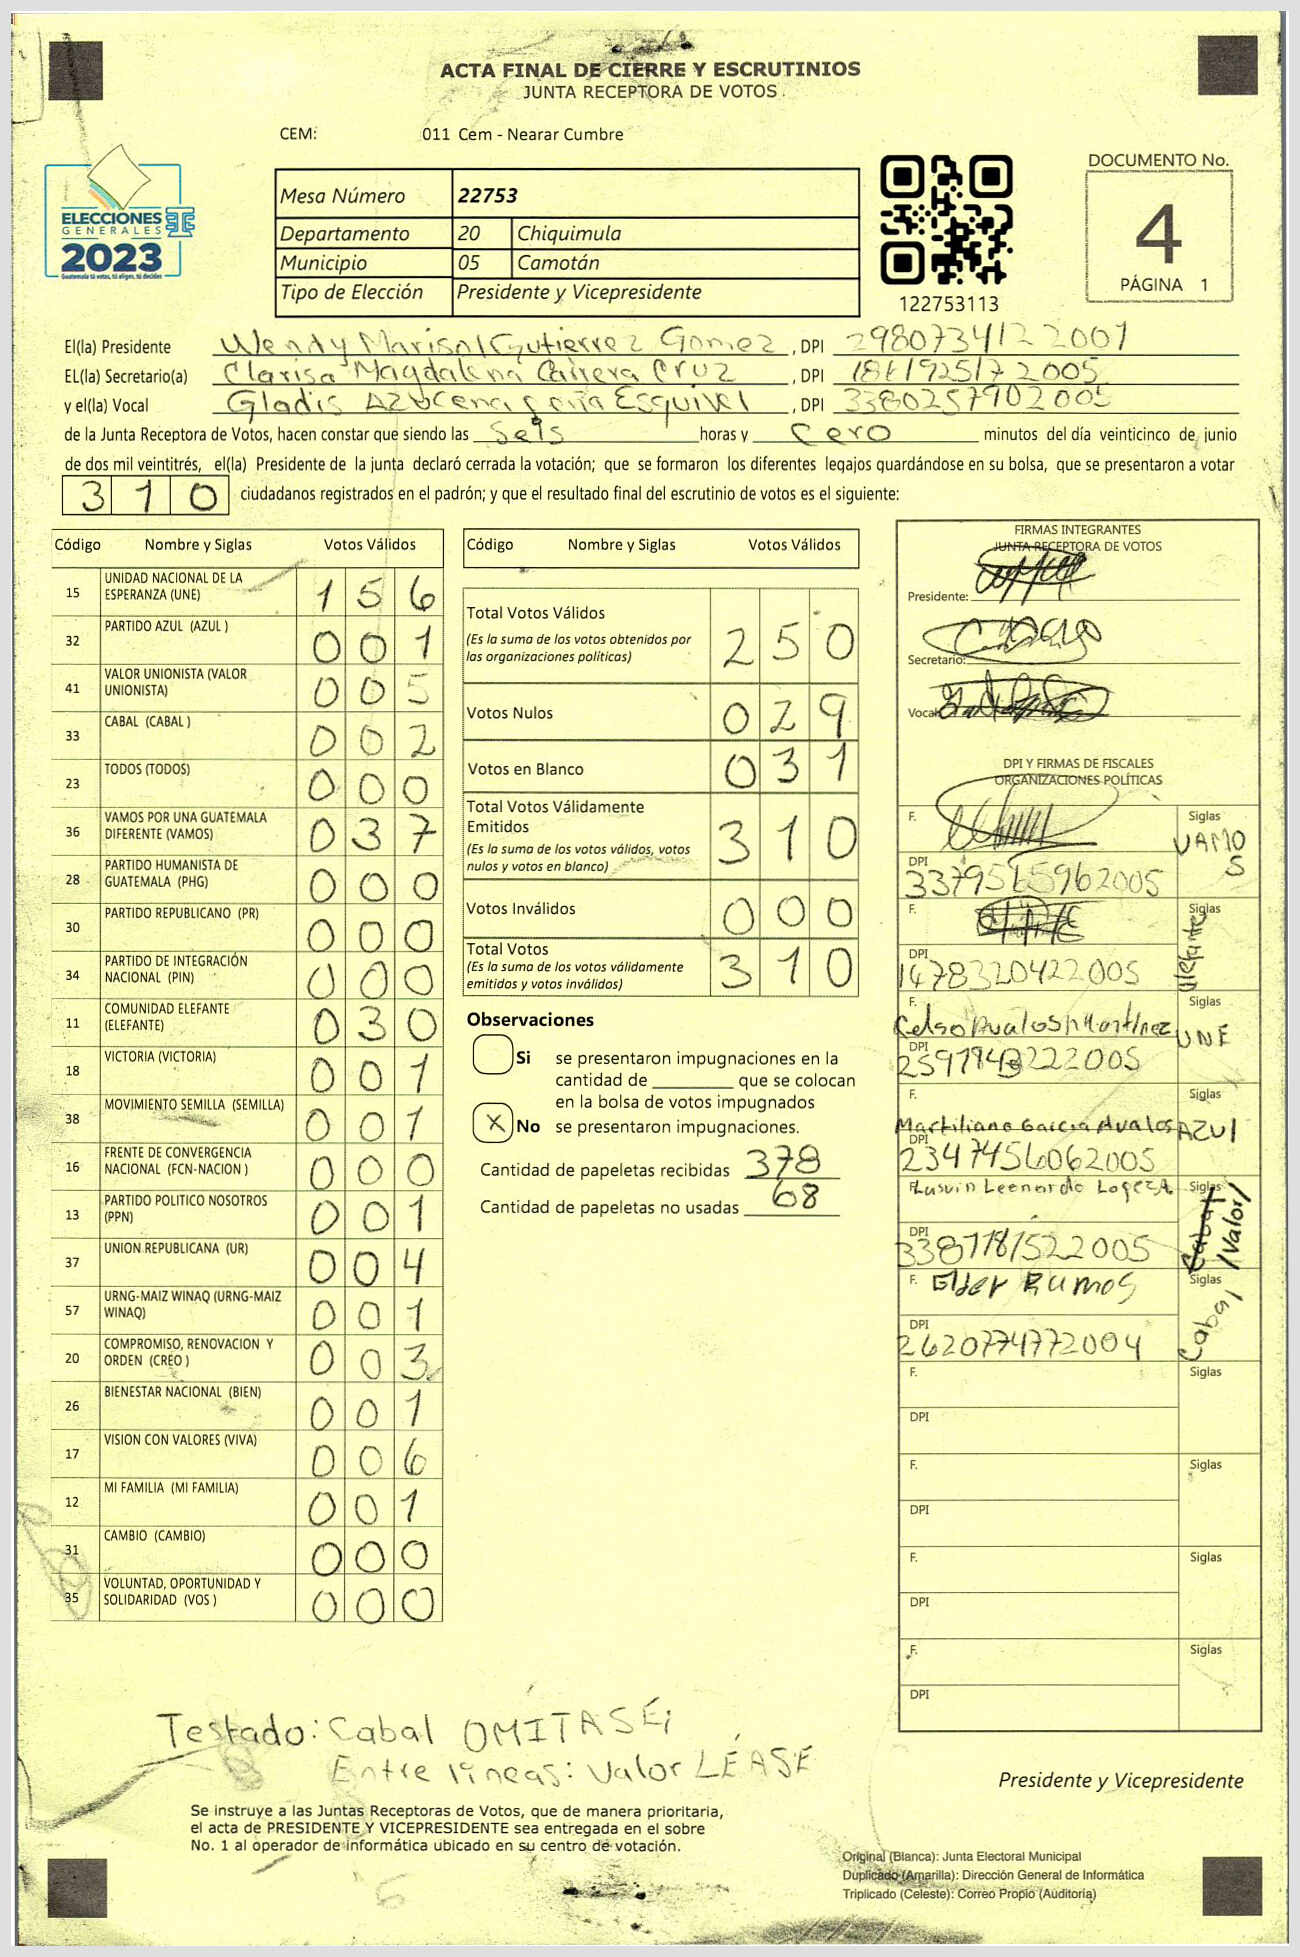 ACTA FINAL DE CIERRE Y ESCRUTINIOS
JUNTA RECEPTORA DE VOTOS
CEM: 011 Cem - Nearar Cumbre
ELECCIONES
GENERALES
2023
Guatemala tú votas, tú eliges, tú decides
Mesa Número 22753
Departamento 20 Chiquimula
Municipio 05 Camotán
Tipo de Elección Presidente y Vicepresidente
122753113
DOCUMENTO No.
4
PÁGINA 1
El(la) Presidente Wendy Marisol Gutierrez Gomez , DPI 2980734122001
EL(la) Secretario(a) Clarisa Magdalena Carrera Cruz , DPI
y el(la) Vocal Gladis Azucena Esquivel , DPI 3380257902005
de la Junta Receptora de Votos, hacen constar que siendo las Seis horas y Cero minutos del día veinticinco de junio
de dos mil veintitrés, el(la) Presidente de la junta declaró cerrada la votación; que se formaron los diferentes legajos guardándose en su bolsa, que se presentaron a votar
310 ciudadanos registrados en el padrón; y que el resultado final del escrutinio de votos es el siguiente:
Código Nombre y Siglas Votos Válidos
15 UNIDAD NACIONAL DE LA ESPERANZA (UNE) 156
32 PARTIDO AZUL (AZUL ) 001
41 VALOR UNIONISTA (VALOR UNIONISTA) 005
33 CABAL (CABAL ) 002
23 TODOS (TODOS) 000
36 VAMOS POR UNA GUATEMALA DIFERENTE (VAMOS) 037
28 PARTIDO HUMANISTA DE GUATEMALA (PHG) 000
30 PARTIDO REPUBLICANO (PR) 000
34 PARTIDO DE INTEGRACIÓN NACIONAL (PIN) 000
11 COMUNIDAD ELEFANTE (ELEFANTE) 030
18 VICTORIA (VICTORIA) 001
38 MOVIMIENTO SEMILLA (SEMILLA) 001
16 FRENTE DE CONVERGENCIA NACIONAL (FCN-NACION ) 000
13 PARTIDO POLITICO NOSOTROS (PPN) 001
37 UNION REPUBLICANA (UR) 004
57 URNG-MAIZ WINAQ (URNG-MAIZ WINAQ) 001
20 COMPROMISO, RENOVACION Y ORDEN (CREO ) 003
26 BIENESTAR NACIONAL (BIEN) 001
17 VISION CON VALORES (VIVA) 006
12 MI FAMILIA (MI FAMILIA) 001
31 CAMBIO (CAMBIO) 000
35 VOLUNTAD, OPORTUNIDAD Y SOLIDARIDAD (VOS ) 000
Código Nombre y Siglas Votos Válidos
Total Votos Válidos 250
(Es la suma de los votos obtenidos por
las organizaciones políticas)
Votos Nulos 029
Votos en Blanco 031
Total Votos Válidamente
Emitidos 310
(Es la suma de los votos válidos, votos
nulos y votos en blanco)
Votos Inválidos 000
Total Votos 310
(Es la suma de los votos válidamente
emitidos y votos inválidos)
Observaciones
Si se presentaron impugnaciones en la
cantidad de ________ que se colocan
en la bolsa de votos impugnados
X No se presentaron impugnaciones.
Cantidad de papeletas recibidas 378
Cantidad de papeletas no usadas 68
FIRMAS INTEGRANTES
JUNTA RECEPTORA DE VOTOS
Presidente:
Secretario:
Vocal
DPI Y FIRMAS DE FISCALES
ORGANIZACIONES POLÍTICAS
F. Siglas VAMOS
DPI
F. Siglas elefante
DPI 1478320422005
F. Celso Avalos Martinez Siglas UNE
DPI
F. Martiliano Garcia Avalos Siglas AZUl
DPI 2347456062005
F. Leonardo Lopez A Siglas Cabal /Valor/
DPI 3387781522005
F. Elder Ramos Siglas Cabal
DPI 2620774772004
F. Siglas
DPI
F. Siglas
DPI
F. Siglas
DPI
F. Siglas
DPI
Testado: Cabal OMITASE;
Entre líneas: Valor LÉASE
Presidente y Vicepresidente
Se instruye a las Juntas Receptoras de Votos, que de manera prioritaria,
el acta de PRESIDENTE Y VICEPRESIDENTE sea entregada en el sobre
No. 1 al operador de informática ubicado en su centro de votación.
Original (Blanca): Junta Electoral Municipal
Duplicado (Amarilla): Dirección General de Informática
Triplicado (Celeste): Correo Propio (Auditoría)